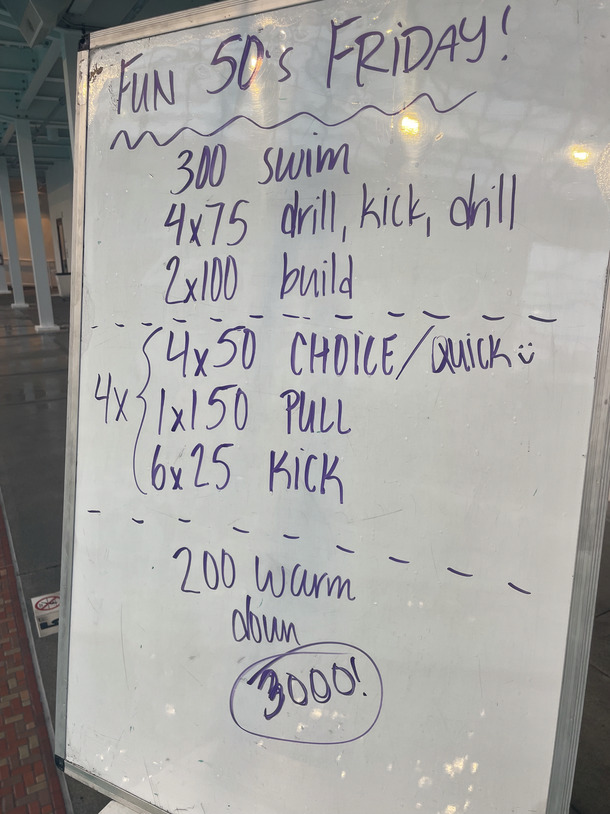 FUN 50's FRiDAY!
300 swim
4x75 drill, kick, drill
2x100 build
4x { 4x50 CHOICE/QUICK :)
1x150 PULL
6x25 KICK
200 warm
down
3000!